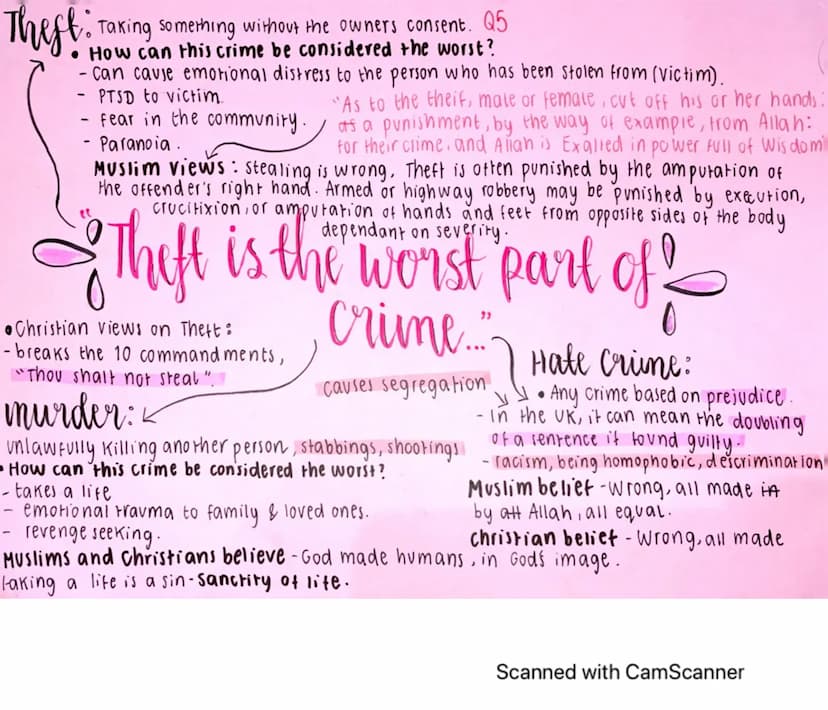 Theft: Taking something without the owners consent. Q5
• How can this crime be considered the worst?
- Can cause emotional distress to the person who has been stolen from (victim).
- PTSD to victim.
- fear in the community.
- Paranoia.
"As to the theif, male or female, cut off his or her hands:
as a punishment, by the way of example, from Allah:
for their crime. and Allah is Exalted in power full of Wisdom"
Muslim views: Stealing is wrong. Theft is often punished by the amputation of
the offender's right hand. Armed or highway robbery may be punished by execution,
crucifixion, or amputation of hands and feet from opposite sides of the body
dependant on severity.
"Theft is the worst part of
crime..."
• Christian views on Theft:
- breaks the 10 commandments,
"Thou shalt not steal".
causes segregation
Hate Crime:
• Any crime based on prejudice.
- In the UK, it can mean the doubling
of a sentence if found guilty.
- racism, being homophobic, descrimination
Muslim belief - Wrong, all made in
by all Allah, all equal.
Christian belief - Wrong, all made
in God's image.
murder:
unlawfully killing another person, stabbings, shootings
• How can this crime be considered the worst?
- takes a life
- emotional trauma to family & loved ones.
- revenge seeking.
Muslims and Christians believe - God made humans,
taking a life is a sin - Sanctity of life.
Scanned with CamScanner